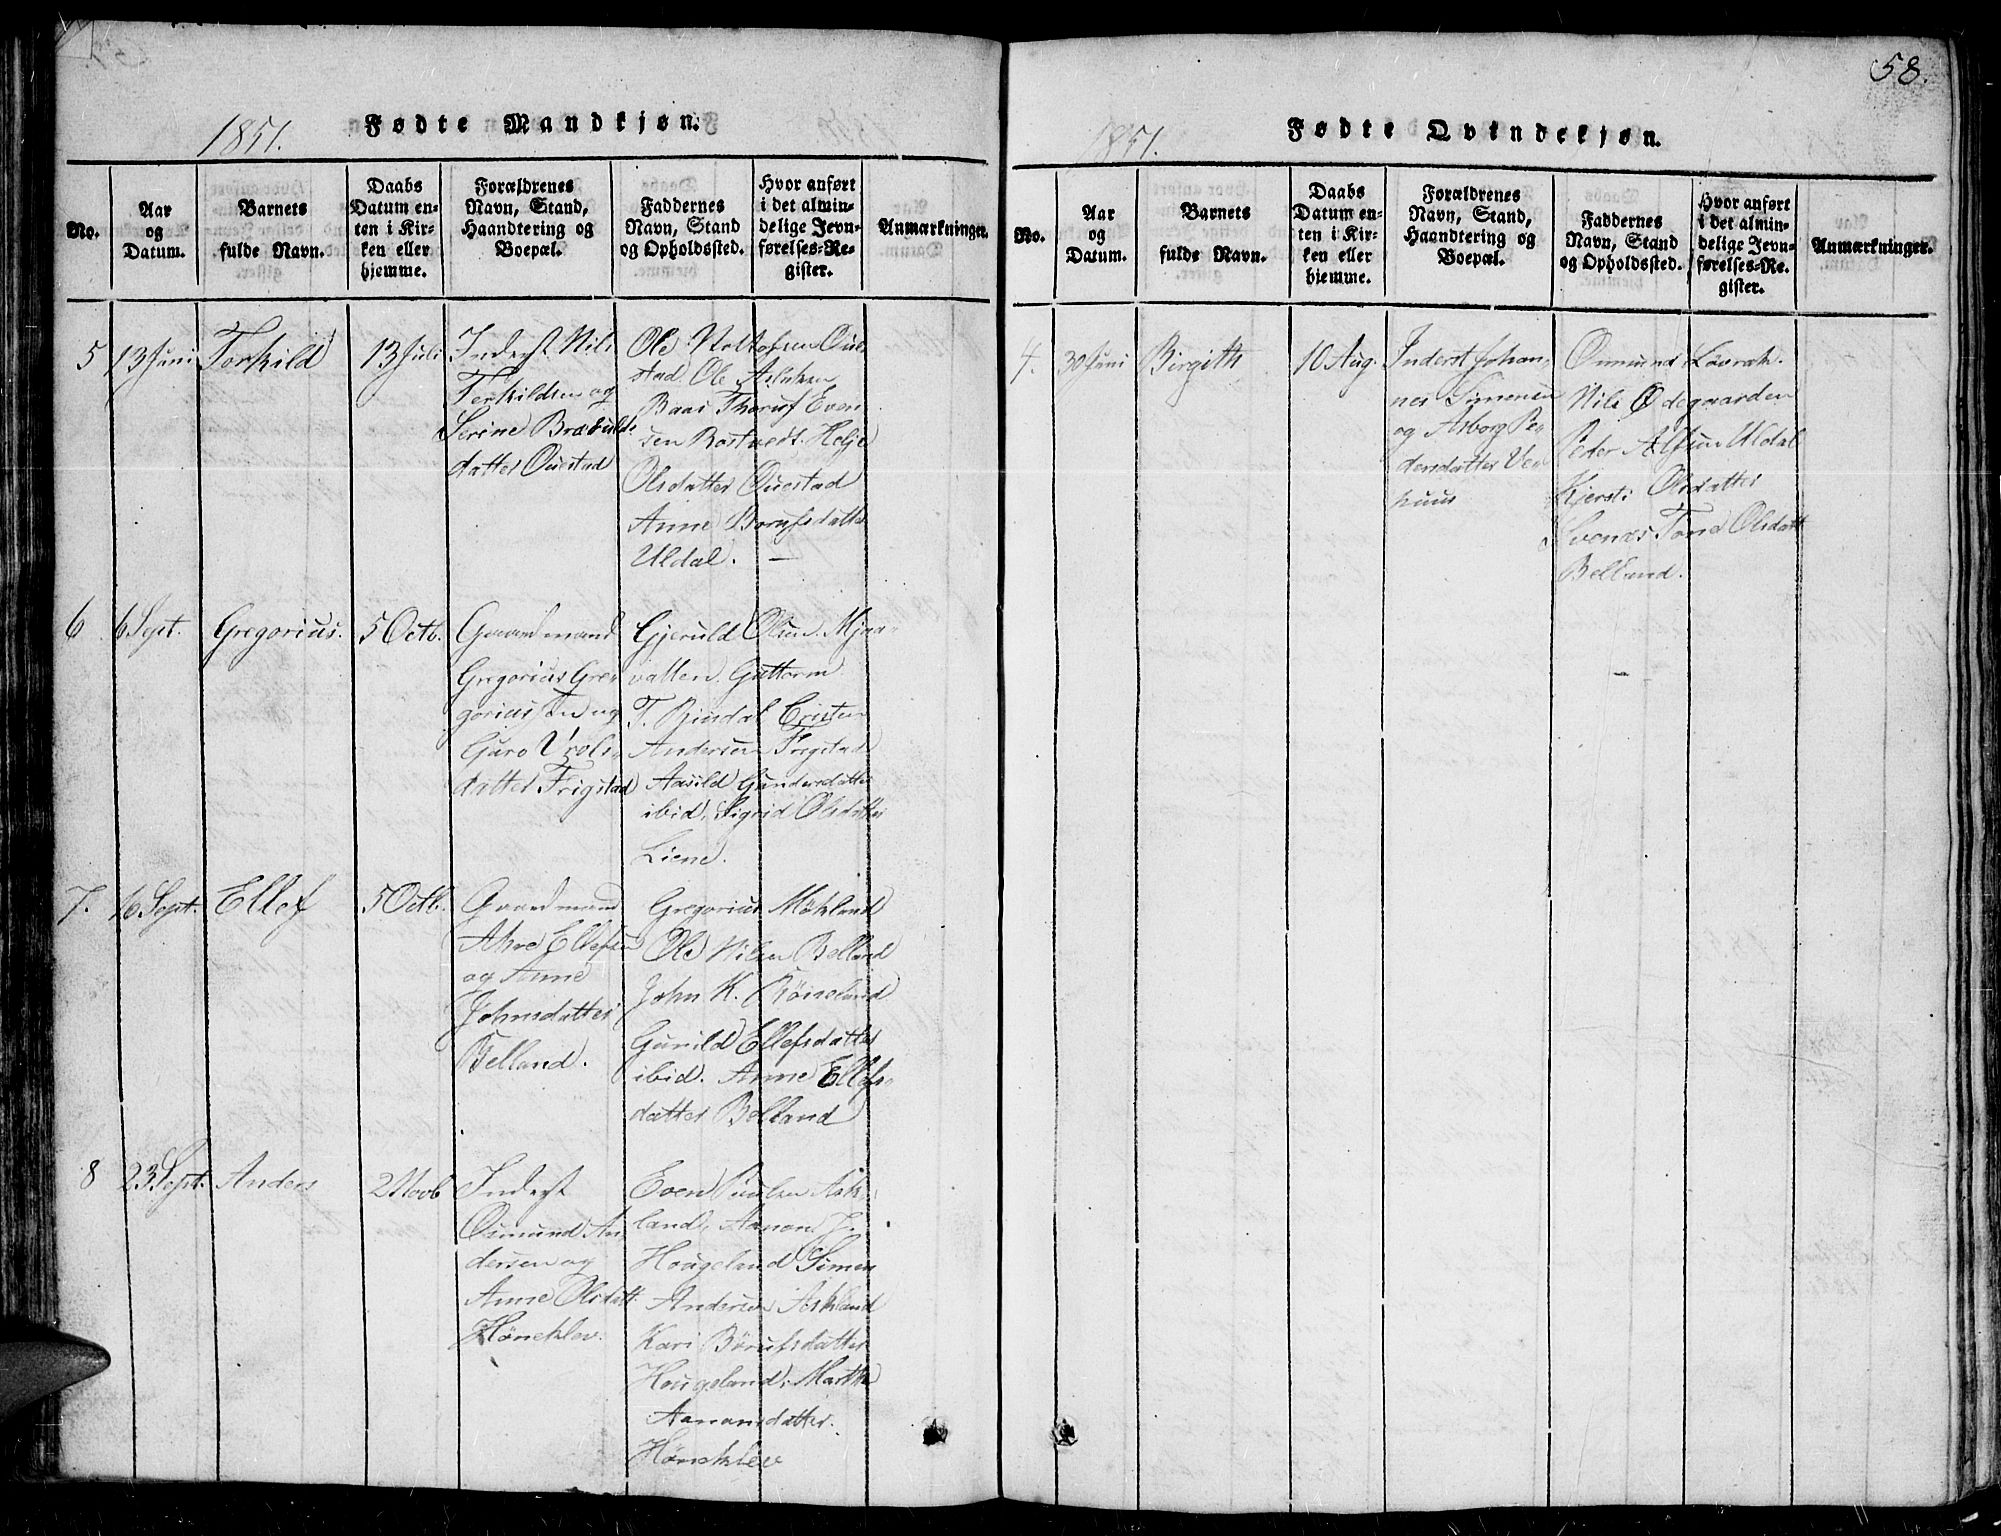 58.
1851.
Fødte Mandkjøn.
No.
Aar
og
Datum.
Barnets
fulde Navn.
Daabs
Datum en-
ten i Kir-
ken eller
hjemme.
Forældrenes
Navn, Stand,
Haandtering og
Boepæl.
Faddernes
Navn, Stand
og Opholdssted.
Hvor anført
i det almin-
delige Jevn-
førelses-Re-
gister.
Anmærkninger.
5
13 Juni
Torkild
13 Juli
Inderst Nils
Terkildsen og
Serine
datter Ouestad
Ole
stad. Ole Aslaksen
Baas Thoruf Even
sen Rostvedt. Helje
Olsdatter Ouestad
Anne Borufsdatter
Uldal. —
6
6 Sept.
Gregorius.
5 Octb.
Gaardmand
Gregorius Gre-
goriussen og
Guro
datter Frigstad
Gjeruld Olsen Mjaa-
vatten. Guttorm
T. Rindal Cristen
Andersen Frigstad
Aasild Gundersdatter
ibid. Sigrid Olsdatter
Liene.
7.
16 Sept.
Ellef
5 Octb.
Gaardmand
Ellefsen
og Anne
Johnsdatter
Belland.
Gregorius Mökland
Ole Nilsen Belland
John K. Röineland
Gunild Ellefsdatter
ibid. Anne Ellefs-
datter Belland
8
23 Sept.
Anders
2 Novb
Inderst
Osmund An
dersen og
Anne Olsdatt.
Höneklev.
Even Paulsen Ask-
land, Aanon J.
Hougeland Simen
Andersen Askland
Kari Börufsdatter
Hougeland, Marthe
Aanonsdatter.
Höneklev
1851.
Fødte Qvindekjøn.
No.
Aar
og
Datum.
Barnets
fulde Navn.
Daabs
Datum en-
ten i Kir-
ken eller
hjemme.
Forældrenes
Navn, Stand,
Haandtering og
Boepæl.
Faddernes
Navn, Stand
og Opholdssted.
Hvor anført
i det almin-
delige Jevn-
førelses-Re-
gister.
Anmærkninger.
4.
30 Juni
Birgith
10 Aug.
Inderst Johan-
nes Simensen
og Asborg Pe-
dersdatter Ver
huus
Osmund Lövrak.
Nils Ødegaarden
Peder Alfsen Uldal
Kjersti Olsdatter
Svenæs Tone Olsdatt
Belland.